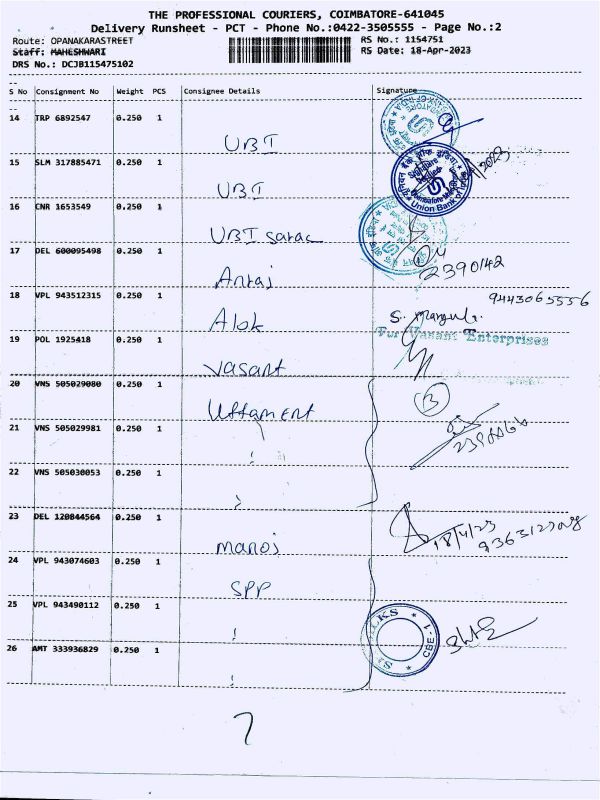 THE PROFESSIONAL COURIERS, COIMBATORE-641045
Delivery Runsheet - PCT - Phone No.:0422-3505555 - Page No.:2
Route: OPANAKARASTREET
RS No.: 1154751
Staff: MAHESHWARI
RS Date: 18-Apr-2023
DRS No.: DCJB115475102
S No Consignment No Weight PCS Consignee Details Signature
14 TRP 6892547 0.250 1 UBI
15 SLM 317885471 0.250 1 UBI
Union Bank of India
16 CNR 1653549 0.250 1 UBI sarac
17 DEL 600095498 0.250 1 Antaj
2390142
18 VPL 943512315 0.250 1 Alok
9443065556
S. Mangul
19 POL 1925418 0.250 1 Vasant
For Vasant Enterprises
20 VNS 505029080 0.250 1 Uttament
B
21 VNS 505029981 0.250 1
22 VNS 505030053 0.250 1
23 DEL 120844564 0.250 1 manoj
18/4/23
24 VPL 943074603 0.250 1 SPP
25 VPL 943490112 0.250 1
CBE - 1
26 AMT 333936829 0.250 1
7